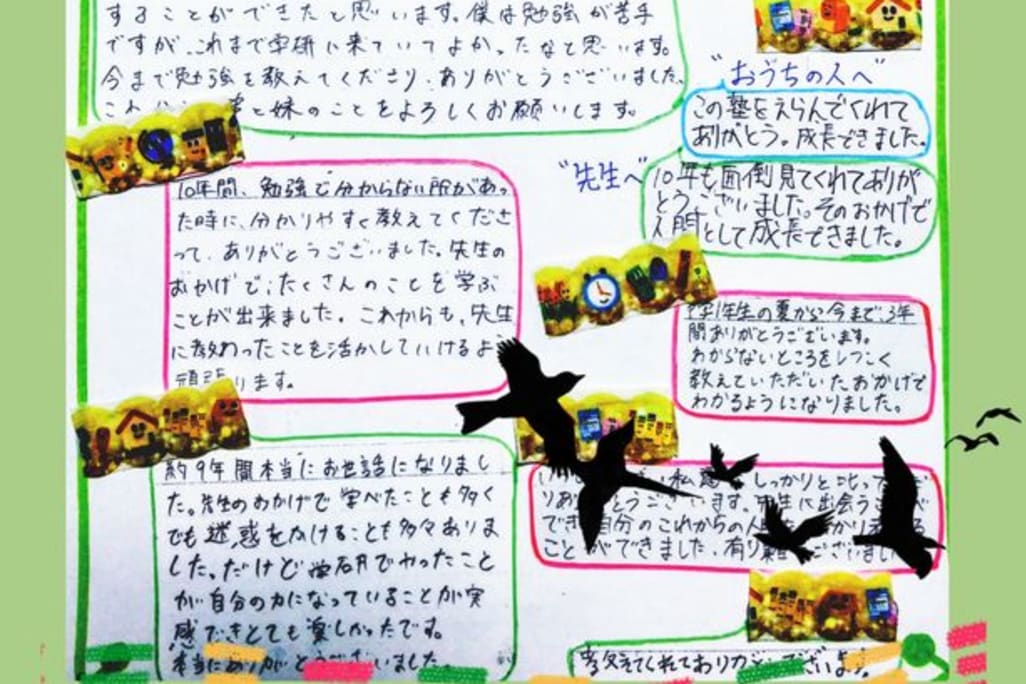 することができたと思います。僕は勉強が苦手
ですが、これまで学研に来ていてよかったなと思います。
今まで勉強を教えてくださり、ありがとうございました。
と妹のことをよろしくお願いします。
"おうちの人へ"
この塾をえらんでくれて
ありがとう。成長できました。
"先生へ"
10年も面倒見てくれてありが
とうございました。そのおかげで
人間として成長できました。
10年間、勉強で分からない所があっ
た時に、分かりやすく教えてくださ
って、ありがとうございました。先生の
おかげで、たくさんのことを学ぶ
ことが出来ました。これからも、先生
に教わったことを活かしていけるよ
頑張ります。
中学1年生の夏から今まで3年
間ありがとうございます。
わからないところをしつこく
教えていただいたおかげで
わかるようになりました。
約9年間本当にお世話になりまし
た。先生のおかげで学べたことも多く
でも迷惑をかけることも多々ありま
した。だけど学研でやったこと
が自分の力になっていることが実
感できとても楽しかったです。
本当にありがとうございました。
私達 しっかりと叱って
とうございます。先生に出会う
でき 自分のこれからの人
ことができました。有り難うございました
教えてくれてありがとうございます。